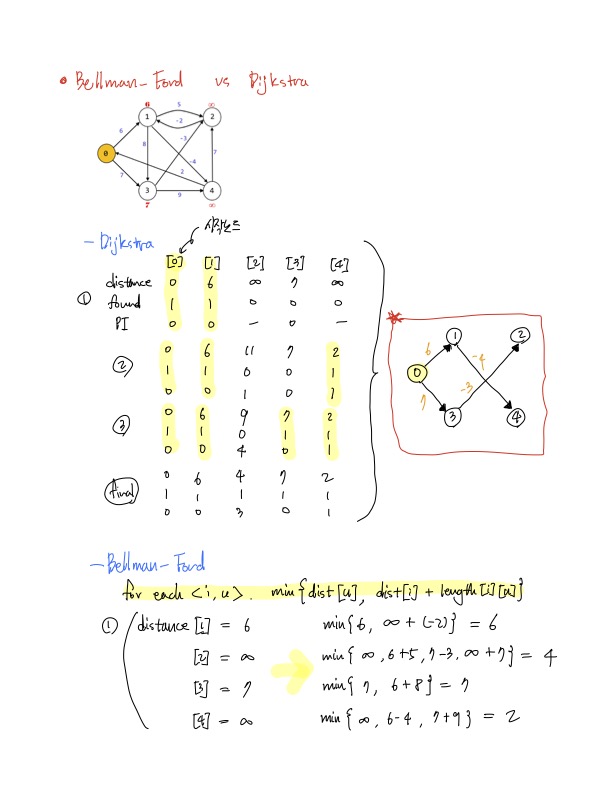 • Bellman-Ford vs Dijkstra
6 ∞
5
1 2
-2
6 -3
8
0 -4 7
2
7
3 9 4
7 ∞
시작노드
- Dijkstra
[0] [1] [2] [3] [4]
distance 0 6 ∞ 7 ∞
① found 1 1 0 0 0
PI 0 0 - 0 -
② 0 6 11 7 2
1 1 0 0 1
0 0 1 0 1
③ 0 6 9 7 2
1 1 0 1 1
0 0 4 0 1
final 0 6 4 7 2
1 1 1 1 1
0 0 3 0 1
*
1 2
6 -4
0
7 -3
3 4
- Bellman-Ford
for each <i, u>. min{dist[u], dist[i] + length[i][u]}
① distance [1] = 6 min{6, ∞ + (-2)} = 6
[2] = ∞ min{∞, 6+5, 7-3, ∞+7} = 4
[3] = 7 min{7, 6+8} = 7
[4] = ∞ min{∞, 6-4, 7+9} = 2